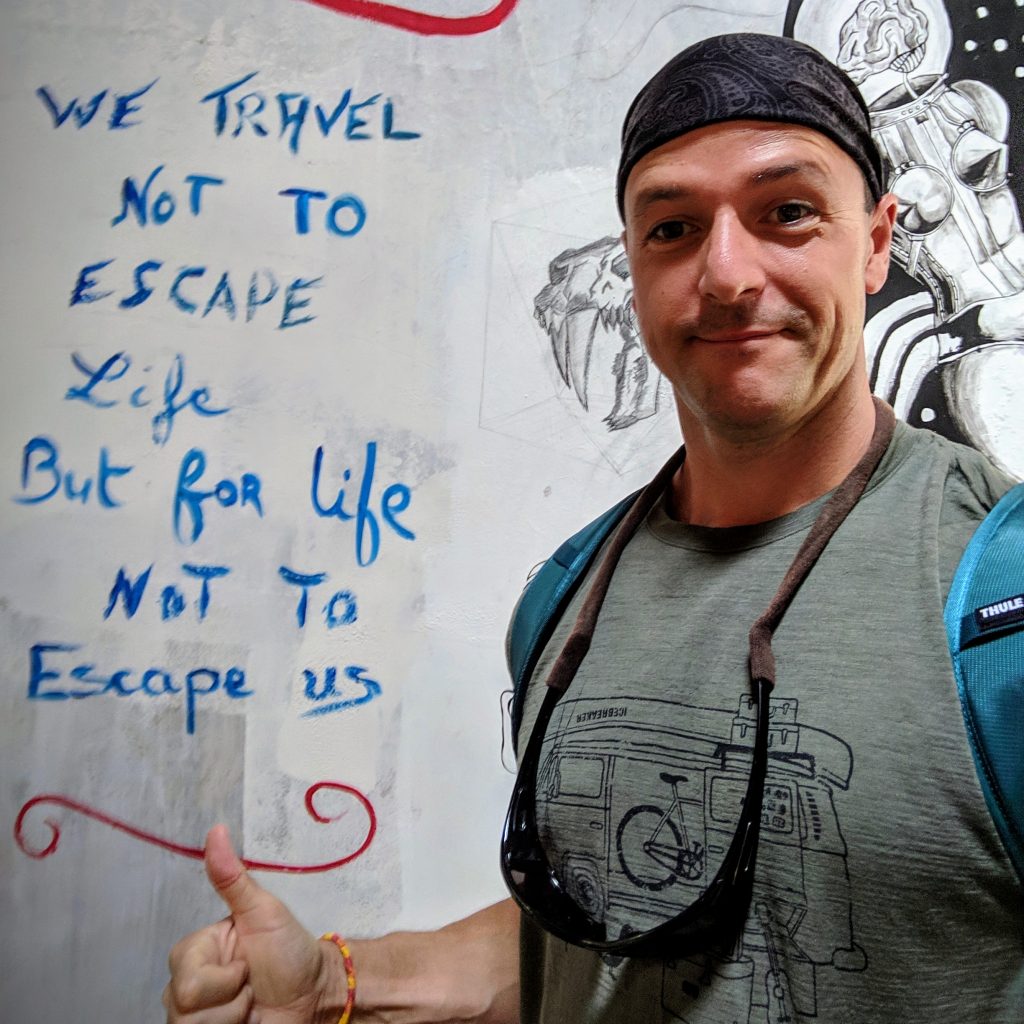 WE TRAVEL
NOT TO
ESCAPE
Life
But for life
NOT To
Escape us
THULE
ICEBREAKER